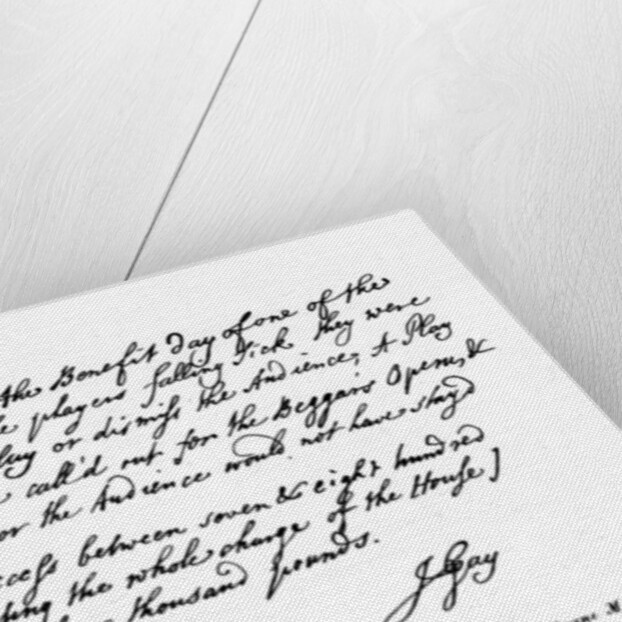 the Benefit day of one of the
players falling sick they were
or dismiss the Audience, A Play
call'd out for the Beggar's Opera, &
or the Audience would not have stay'd
between seven & eight hundred
the whole charge of the House]
thousand pounds.
J Gay